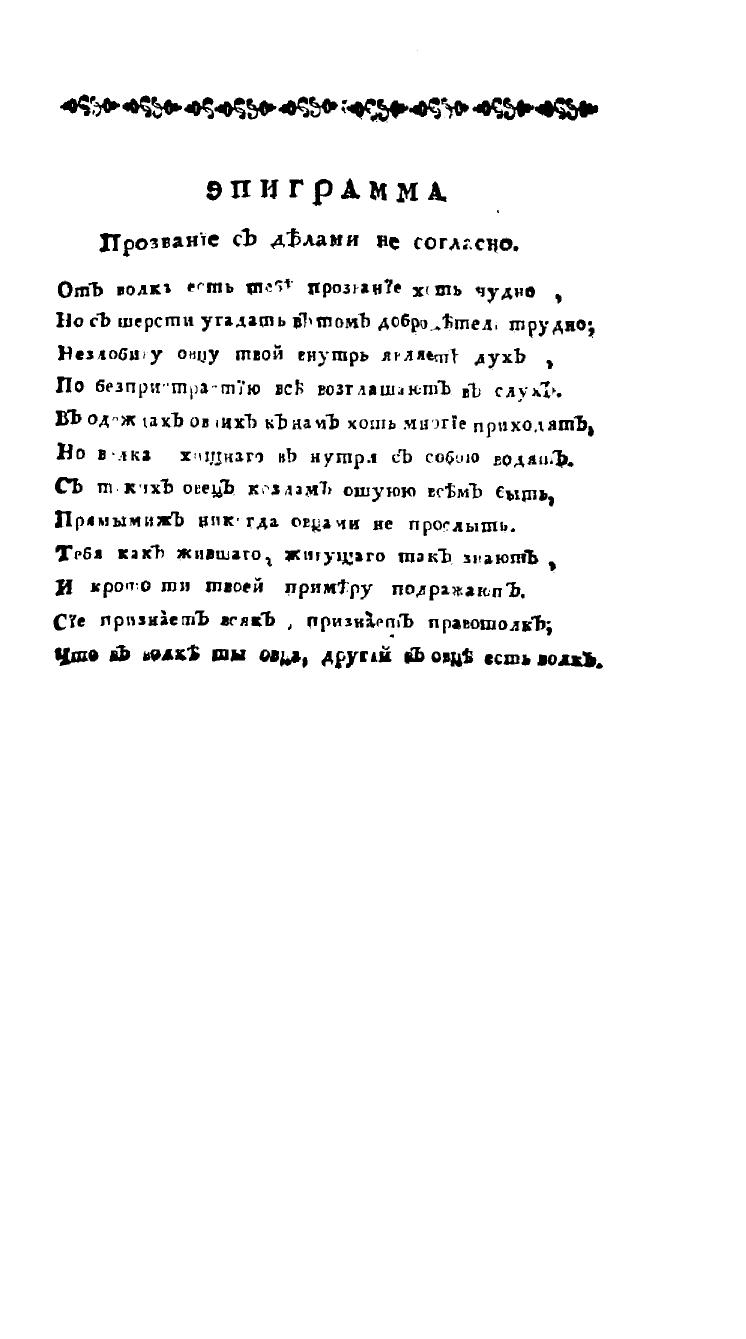 ЭПИГРАММА
Прозванїе съ дѣлами не согласно.
Отъ волка есть тебѣ прозванїе хоть чудно,
Но съ шерсти угадать въ томъ добродѣтель трудно;
Незлобиву овцу твой внутрь являетъ духъ,
По безпристрастїю всѣ возглашаютъ въ слухъ.
Въ одеждахъ овчихъ къ намъ хошь многїе приходятъ,
Но волка хищнаго въ нутрѣ съ собою водятъ.
Съ такихъ овецъ козламъ ошуюю всѣмъ быть,
Прямымижъ никогда овцами не прослыть.
Тебя какъ жившаго, живущаго такъ знаютъ,
И кротости твоей примѣру подражаютъ.
Сїе признаетъ всякъ, признаетъ правотолкъ;
Что въ волкѣ ты овца, другїй въ овцѣ есть волкъ.